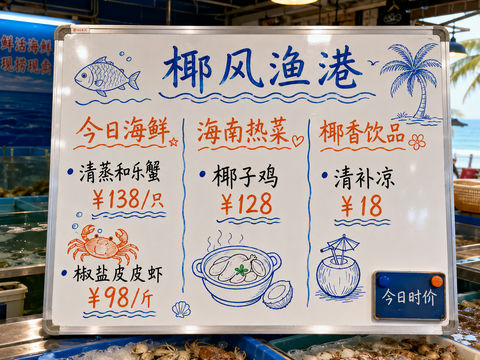 鲜活海鲜
现捞现卖
椰风渔港
今日海鲜
清蒸和乐蟹
¥138/只
椒盐皮皮虾
¥98/斤
海南热菜
椰子鸡
¥128
椰香饮品
清补凉
¥18
今日时价